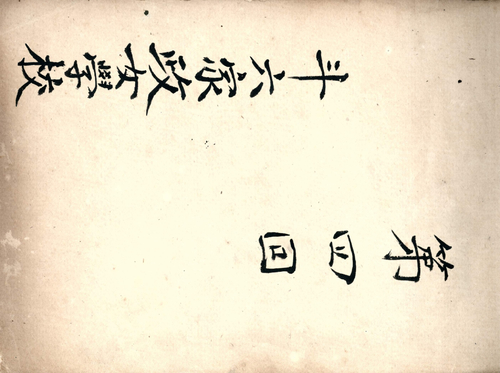 第四回
斗六家政女學校